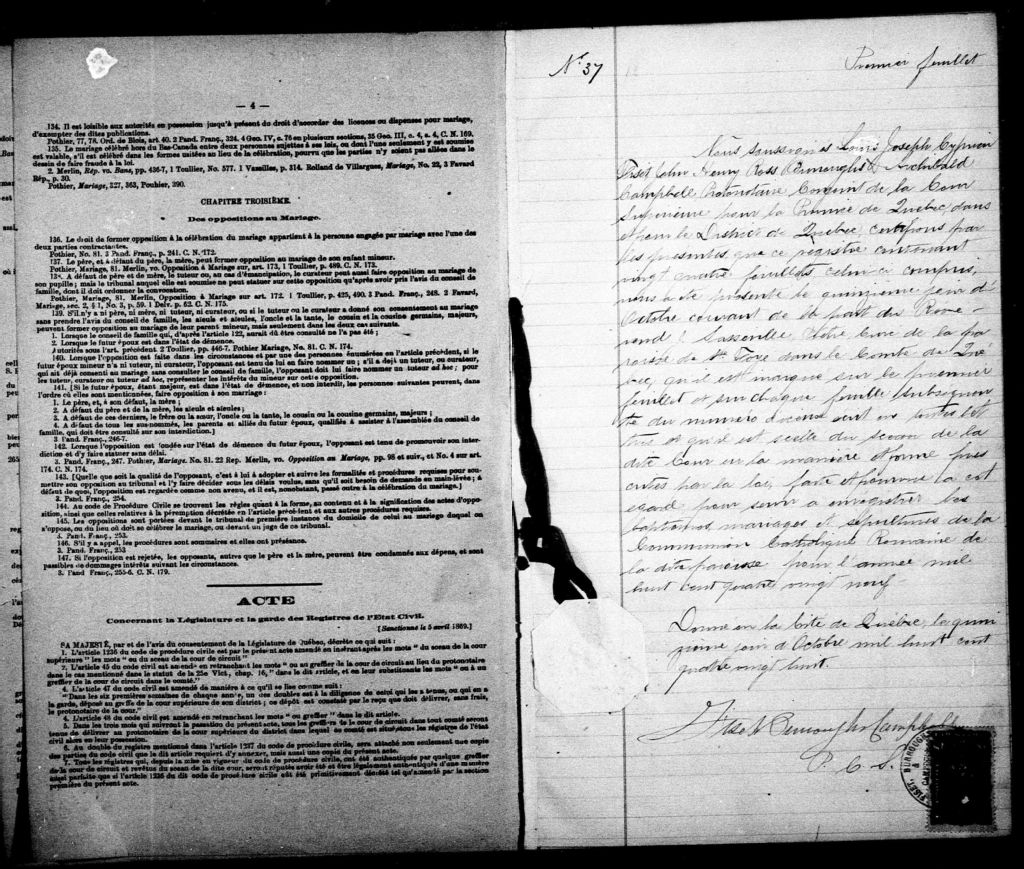 — 4 —
134. Il est loisible aux autorités en possession jusqu'à présent du droit d'accorder des licences ou dispenses pour mariage,
d'exempter des dites publications.
Pothier, 77, 78. Ord. de Blois, art. 40. 2 Pand. Franç., 324. 4 Geo. IV, c. 76 en plusieurs sections, 35 Geo. III, c. 4, s. 4, C. N. 169.
135. Le mariage célébré hors du Bas-Canada entre deux personnes sujettes à ses lois, ou dont l'une seulement y est soumise
est valable, s'il est célébré dans les formes usitées au lieu de la célébration, pourvu que les parties n'y soient pas allées dans le
dessein de faire fraude à la loi.
2. Merlin, Rép. vo. Bans, pp. 436-7, 1 Toullier, No. 577. 1 Vazeilles, p. 314. Rolland de Villargues, Mariage, No. 22, 3 Favard
Rép., p. 30.
Pothier, Mariage, 227, 363, Pouhier, 390.
CHAPITRE TROISIÈME.
Des oppositions au Mariage.
136. Le droit de former opposition à la célébration du mariage appartient à la personne engagée par mariage avec l'une des
deux parties contractantes.
Pothier, No. 81. 3 Pand. Franç., p. 241. C. N. 172.
137. Le père, et à défaut du père, la mère, peut former opposition au mariage de son enfant mineur.
Pothier, Mariage, 81. Merlin, vo. Opposition à Mariage, sur art. 173, 1 Toullier, p. 489. C. N. 173.
138. A défaut de père et de mère, le tuteur, ou, au cas d'émancipation, le curateur peut aussi faire opposition au mariage de
son pupille; mais le tribunal auquel elle est soumise ne peut statuer sur cette opposition qu'après avoir pris l'avis du conseil de
famille, dont il doit ordonner la convocation.
Pothier, Mariage, 81. Merlin, Opposition à Mariage sur art. 172. 1 Toullier, p. 425, 490. 3 Pand. Franç., 248. 2 Favard,
Mariage, sec. 2, § 1, No. 3, p. 59. 1 Delv. p. 62. C. N. 175.
139. S'il n'y a ni père, ni mère, ni tuteur, ni curateur, ou si le tuteur ou le curateur a donné son consentement au mariage
sans prendre l'avis du conseil de famille, les aïeuls et aïeules, l'oncle et la tante, le cousin et la cousine germains, majeurs,
peuvent former opposition au mariage de leur parent mineur, mais seulement dans les deux cas suivants.
1. Lorsque le conseil de famille qui, d'après l'article 122, aurait dû être consulté ne l'a pas été;
2. Lorsque le futur époux est dans l'état de démence.
Autorités sous l'art. précédent. 2 Toullier, pp. 446-7. Pothier Mariage, No. 81. C. N. 174.
140. Lorsque l'opposition est faite dans les circonstances et par une des personnes énumérées en l'article précédent, si le
futur époux mineur n'a ni tuteur, ni curateur, l'opposant est tenu de lui en faire nommer un; s'il a déjà un tuteur, ou curateur,
qui ait déjà consenti au mariage sans consulter le conseil de famille, l'opposant doit lui faire nommer un tuteur ad hoc; pour
les tuteur, curateur ou tuteur ad hoc, représenter les intérêts du mineur sur cette opposition.
141. [Si le futur époux, étant majeur, est dans l'état de démence, et non interdit, les personnes suivantes peuvent, dans
l'ordre où elles sont mentionnées, faire opposition à son mariage:
1. Le père, et, à son défaut, la mère;
2. A défaut du père et de la mère, les aïeuls et aïeules;
3. A défaut de ces derniers, le frère ou la sœur, l'oncle ou la tante, le cousin ou la cousine germains, majeurs;
4. A défaut de tous les sus-nommés, les parents et alliés du futur époux, qualifiés à assister à l'assemblée du conseil de
famille, qui doit être consulté sur son interdiction.]
3 Pand. Franç., 246-7.
142. Lorsque l'opposition est fondée sur l'état de démence du futur époux, l'opposant est tenu de promouvoir son inter-
diction et d'y faire statuer sans délai.
3. Pand. Franç., 247. Pothier, Mariage. No. 81. 22 Rep. Merlin, vo. Opposition au Mariage, pp. 98 et suiv., et No. 4 sur art.
174. C. N. 174.
143. [Quelque que soit la qualité de l'opposant, c'est à lui à adopter et suivre les formalités et procédures requises pour sou-
mettre son opposition au tribunal et l'y faire décider sous les délais voulus, sans qu'il soit besoin de demande en main-levée; à
défaut de quoi, l'opposition est regardée comme non avenue, et il est, nonobstant, passé outre à la célébration du mariage.]
3. Pand. Franç., 254.
144. Au code de Procédure Civile se trouvent les règles quant à la forme, au contenu et à la signification des actes d'oppo-
sition, ainsi que celles relatives à la péremption décrétée en l'article précédent et aux autres procédures requises.
145. Les oppositions sont portées devant le tribunal de première instance du domicile de celui au mariage duquel on
s'oppose, ou du lieu où doit se célébrer le mariage, ou devant un juge de ce tribunal.
3. Pand. Franç., 253.
146. S'il y a appel, les procédures sont sommaires et elles ont préséance.
3. Pand. Franç., 253
147. Si l'opposition est rejetée, les opposants, autres que le père et la mère, peuvent être condamnés aux dépens, et sont
passibles de dommages intérêts suivant les circonstances.
3. Pand Franç., 255-6. C. N. 179.
ACTE
Concernant la Législature et la garde des Registres de l'Etat Civil.
[Sanctionné le 5 avril 1869.]
SA MAJESTÉ, par et de l'avis du consentement de la Législature de Québec, décrète ce qui suit:
1. L'article 1236 du code de procédure civile est par le présent acte amendé en insérant après les mots "du sceau de la cour
supérieure" les mots "ou du sceau de la cour de circuit"
2. L'article 45 du code civil est amendé en retranchant les mots "ou au greffier de la cour de circuit au lieu du protonotaire
dans le cas mentionné dans le statut de la 25e Vict., chap. 16," dans le dit article, et en leur substituant les mots "ou à un
greffier de la cour de circuit dans le comté."
4. L'article 47 du code civil est amendé de manière à ce qu'il se lise comme suit:
"Dans les six premières semaines de chaque année, un des doubles est à la diligence de celui qui les a tenus, ou qui en a
la garde, déposé au greffe de la cour supérieure de son district; ce dépôt est constaté par le reçu que doit délivrer, sans frais,
le protonotaire de la cour."
4. L'article 48 du code civil est amendé en retranchant les mots "ou greffier" dans le dit article.
5. Dans les trois mois qui suivront la passation du présent acte, tous les greffiers de la cour de circuit dans tout comté seront
tenus de délivrer au protonotaire de la cour supérieure du district dans lequel ce comté est situé tous les registres de l'état
civil alors en leur possession.
6. Au double du registre mentionné dans l'article 1237 du code de procédure civile, sera attaché non seulement une copie
des parties du code civil que le dit article requiert d'y annexer, mais aussi une copie du présent acte.
7. Tous les régistres qui, depuis la mise en vigueur du code de procédure civile, ont été authentiqués par quelque greffier
de la cour de circuit et revêtus du sceau de la dite cour, seront réputés avoir été et être légalement authentiqués d'une manière
aussi parfaite que si l'article 1236 du dit code de procédure civile eût été primitivement décrété tel qu'amendé par la section
première du présent acte.
No. 37
Premier feuillet
Nous soussignés Louis Joseph Cyprien
Fiset John Henry Ross Burroughs & Archibald
Campbell Protonotaire Conjoint de la Cour
Supérieure pour la Province de Québec, dans
et pour le District de Québec, certifions par
les présentes que ce registre contenant
vingt quatre feuillets celui-ci compris,
nous a été présenté le quinzième jour d'
Octobre courant de la part du Reve-
rend Sasseville Ptre Curé de la pa
roisse de Ste Foye dans le Comté de Qué
bec, qu'il est marqué sur le premier
feuillet et sur chaque feuillet subséquent
du numéro d'icelui écrit en toutes let
tres et qu'il est scellé du sceau de la
dite Cour en la manière et forme pres
crites par la loi, faite et pourvue à cet
égard, pour servir à enregistrer les
baptêmes, mariages et sépultures de la
Communion Catholique Romaine de
la dite paroisse pour l'année mil
huit cent quatre vingt neuf
Donné en la Cité de Québec, le quin
zième jour d'Octobre mil huit cent
quatre vingt huit.
Fiset Burroughs Campbell
P. C. S.
FISET, BURROUGHS & CAMPBELL